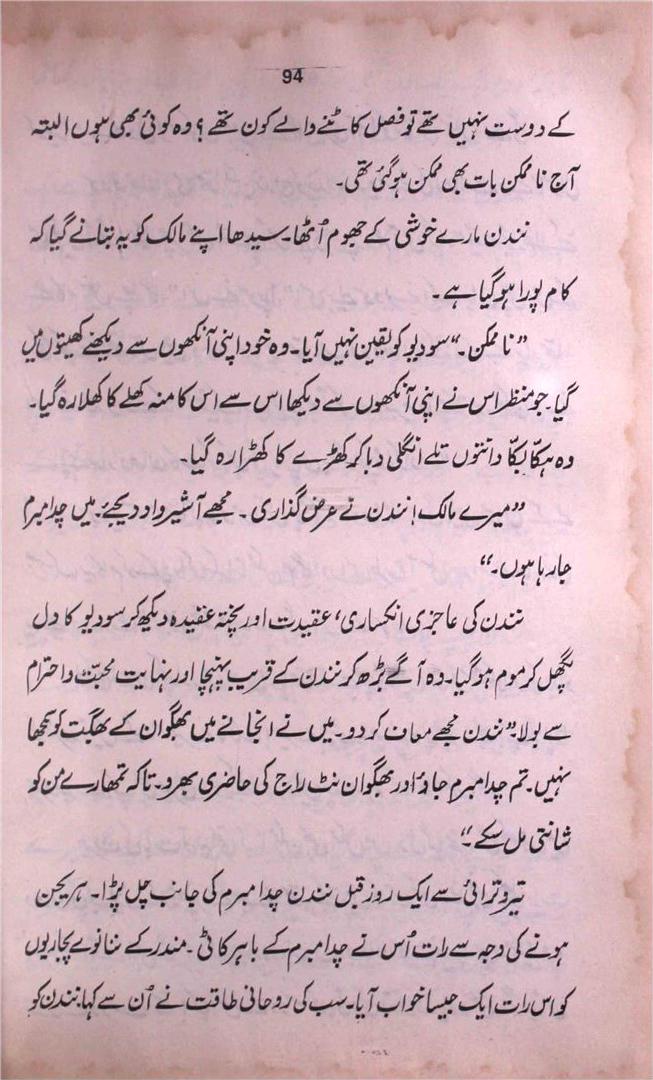 94
کے دوست نہیں تھے تو فصل کاٹنے والے کون تھے؟ وہ کوئی بھی ہوں البتہ
آج ناممکن بات بھی ممکن ہو گئی تھی۔
نندن مارے خوشی کے جھوم اُٹھا۔ سیدھا اپنے مالک کو یہ بتانے گیا کہ
کام پورا ہو گیا ہے۔
”ناممکن۔“ سودیو کو یقین نہیں آیا۔ وہ خود اپنی آنکھوں سے دیکھنے کھیتوں میں
گیا۔ جو منظر اس نے اپنی آنکھوں سے دیکھا اس سے اس کا منہ کھلے کا کھلا رہ گیا۔
وہ ہکّا بکّا دانتوں تلے انگلی دبا کر کھڑے کا کھڑا رہ گیا۔
”میرے مالک! نندن نے عرض گذاری۔ مجھے آشیرواد دیجئے۔ میں چدامبرم
جا رہا ہوں۔“
نندن کی عاجزی انکساری‘ عقیدت اور پختہ عقیدہ دیکھ کر سودیو کا دل
پگھل کر موم ہو گیا۔ وہ آگے بڑھ کر نندن کے قریب پہنچا اور نہایت محبّت و احترام
سے بولا۔ ”نندن مجھے معاف کر دو۔ میں نے انجانے میں بھگوان کے بھگت کو سمجھا
نہیں۔ تم چدامبرم جاؤ اور بھگوان نٹ راج کی حاضری بھرو۔ تاکہ تمھارے من کو
شانتی مل سکے۔“
تیروترائی سے ایک روز قبل نندن چدامبرم کی جانب چل پڑا۔ ہریجن
ہونے کی وجہ سے رات اُس نے چدامبرم کے باہر کاٹی۔ مندر کے ننانوے پجاریوں
کو اس رات ایک جیسا خواب آیا۔ سب کی روحانی طاقت نے اُن سے کہا: نندن کو